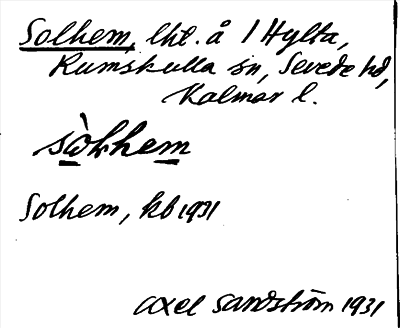 Solhem, lht. å 1 Hylta,
Rumskulla sn, Sevede hd,
Kalmar l.
Solhem, kb 1931
Axel Sandström 1931